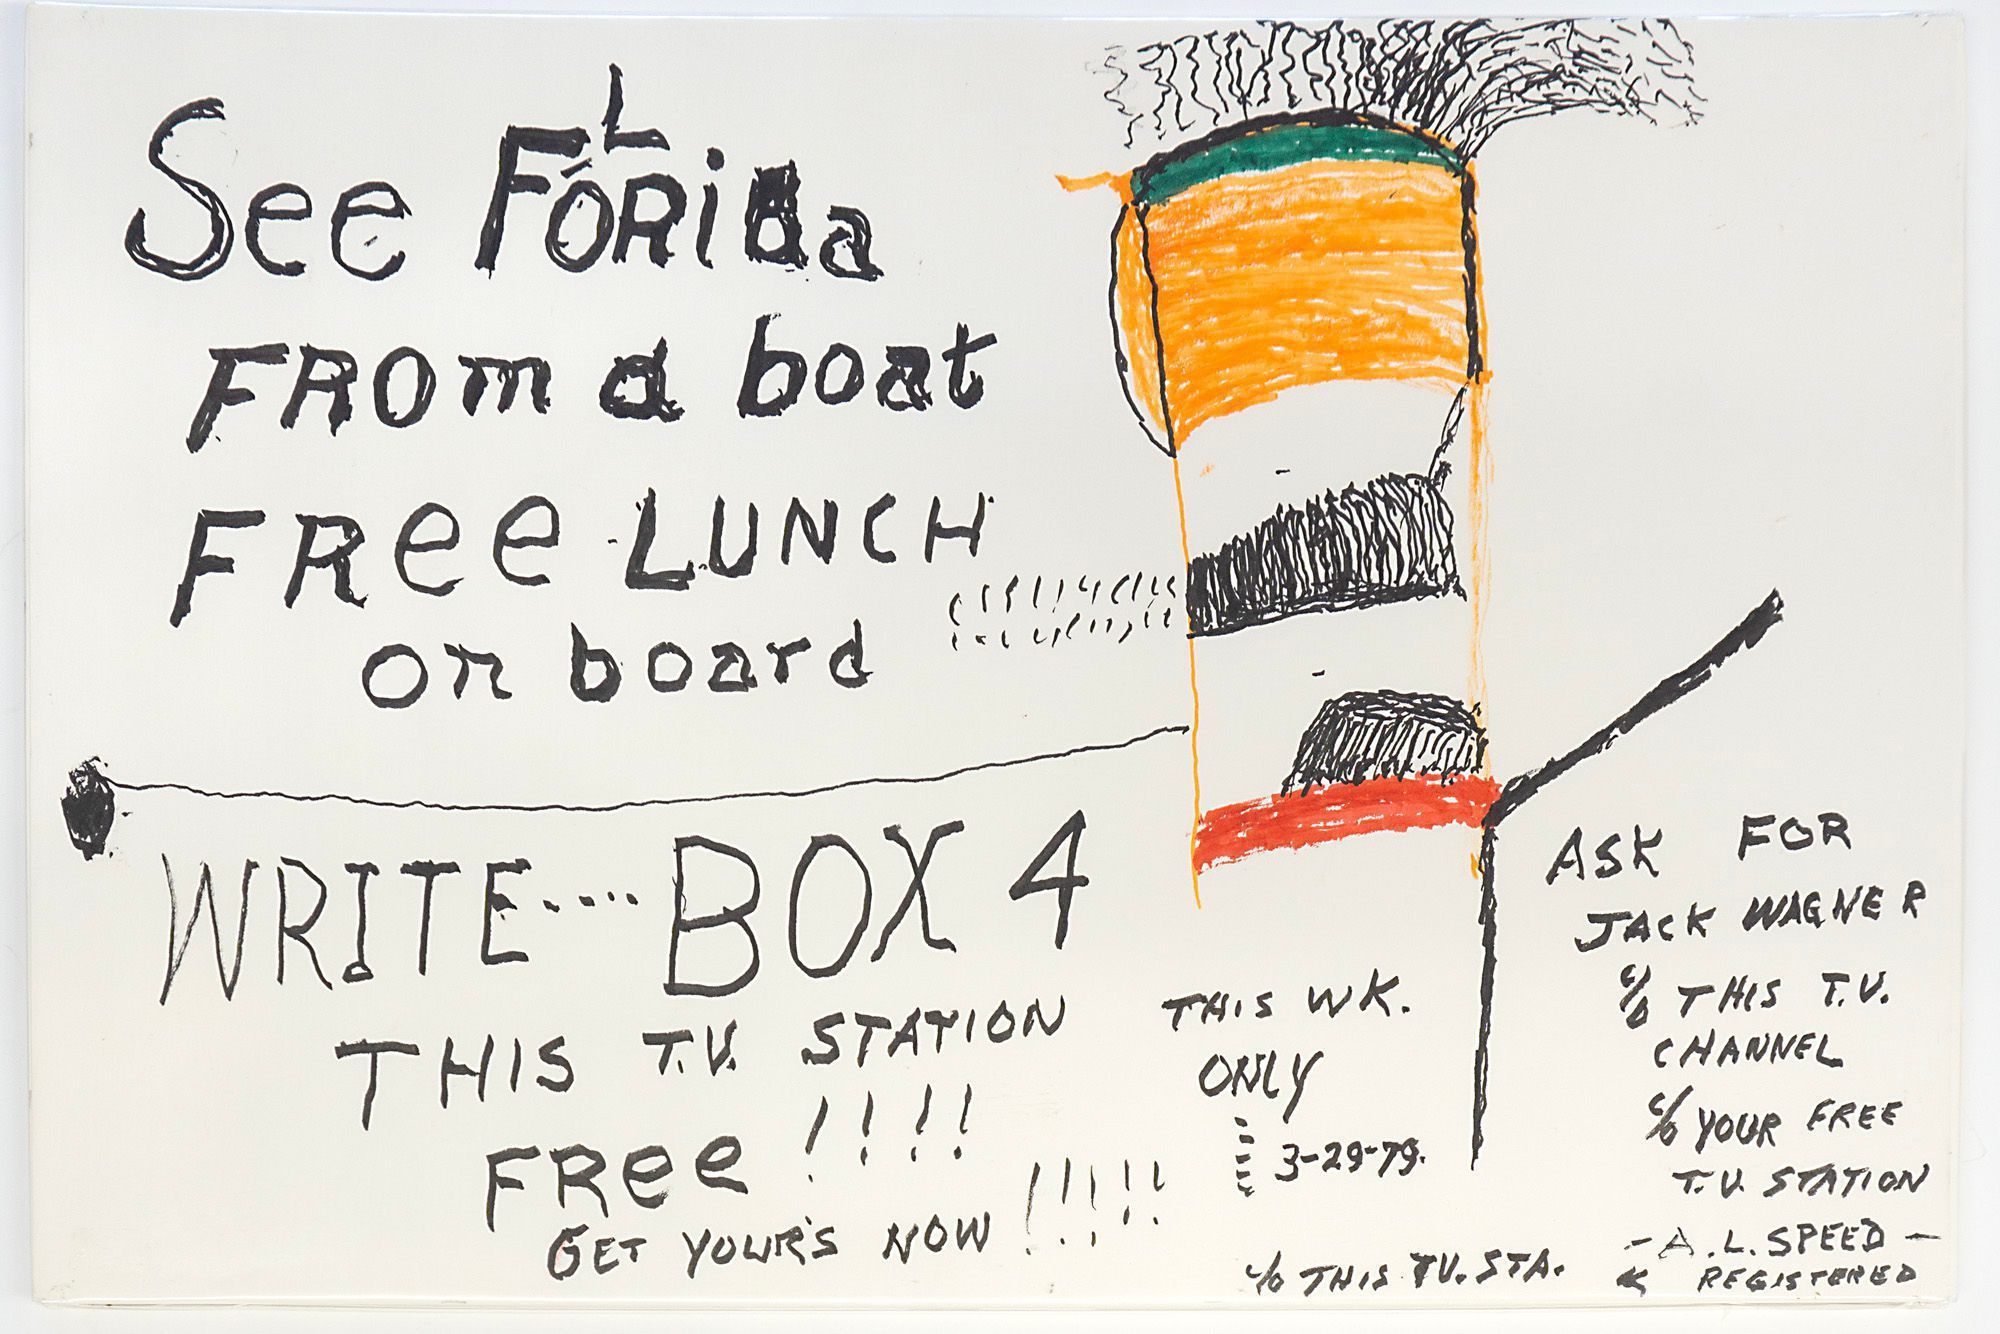 See FLORida
FROm a boat
FRee LUNCH
on board
WRITE.... BOX 4
THIS T.V. STATION
FRee !!!!
GET YOUR'S NOW !!!!!
THIS WK.
ONLY
3-29-79.
℅ THIS TV. STA.
ASK FOR
JACK WAGNER
℅ THIS T.V.
CHANNEL
℅ YOUR FREE
T.V. STATION
- A.L. SPEED -
REGISTERED